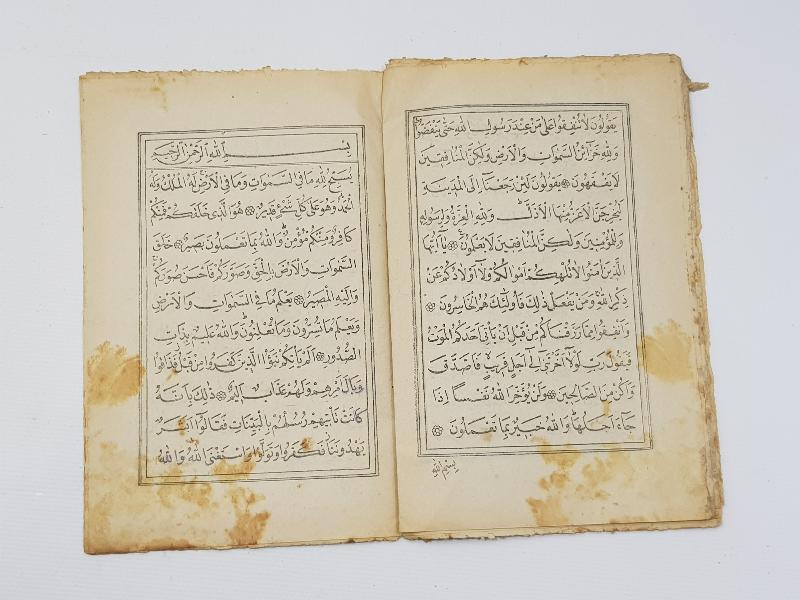 يقولون لا تنفقوا على من عند رسول الله حتى ينفضوا
ولله خزائن السموات والارض ولكن المنافقين
لا يفقهون يقولون لئن رجعنا الى المدينة
ليخرجن الاعز منها الاذل ولله العزة ولرسوله
وللمؤمنين ولكن المنافقين لا يعلمون يا ايها
الذين امنوا لا تلهكم اموالكم ولا اولادكم عن
ذكر الله ومن يفعل ذلك فاولئك هم الخاسرون
وانفقوا مما رزقناكم من قبل ان ياتى احدكم الموت
فيقول رب لولا اخرتنى الى اجل قريب فاصدق
واكن من الصالحين ولن يؤخر الله نفسا اذا
جاء اجلها والله خبير بما تعملون
بسم الله
بسم الله الرحمن الرحيم
يسبح لله ما فى السموات وما فى الارض له الملك وله
الحمد وهو على كل شئ قدير هو الذى خلقكم فمنكم
كافر ومنكم مؤمن والله بما تعملون بصير خلق
السموات والارض بالحق وصوركم فاحسن صوركم
واليه المصير يعلم ما فى السموات والارض
ويعلم ما تسرون وما تعلنون والله عليم بذات
الصدور الم ياتكم نبؤا الذين كفروا من قبل فذاقوا
وبال امرهم ولهم عذاب اليم ذلك بانه
كانت تاتيهم رسلهم بالبينات فقالوا ابشر
يهدوننا فكفروا وتولوا واستغنى الله والله